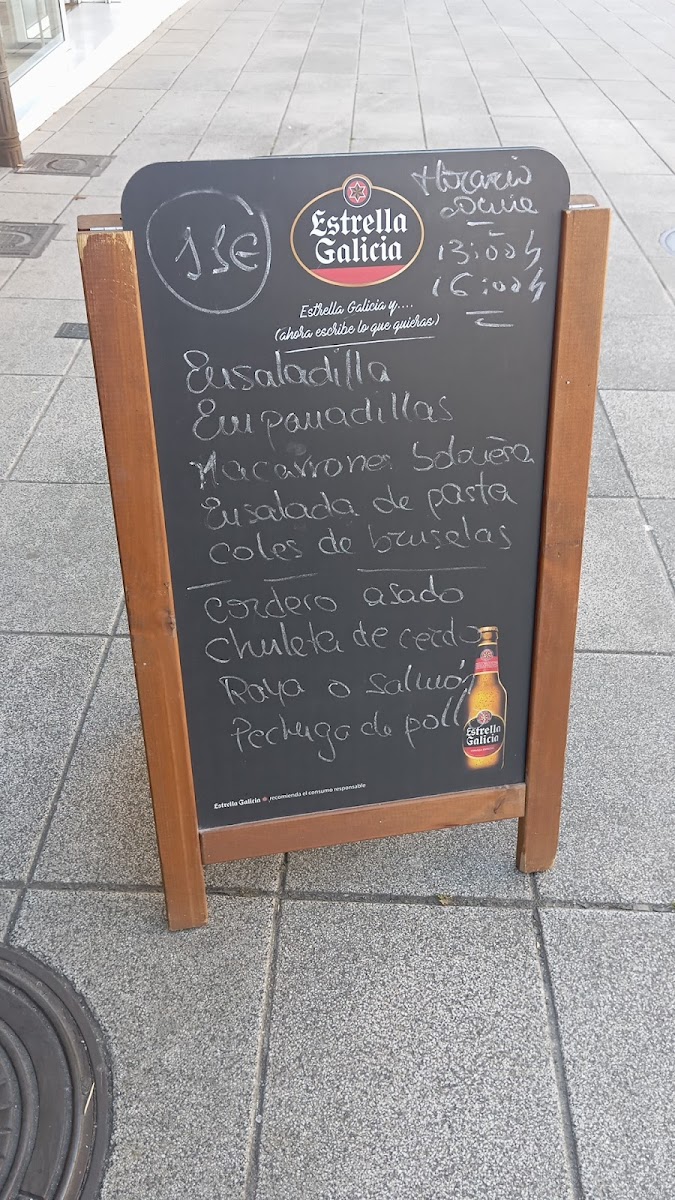 13€
Estrella
Galicia
Horario
cocina
13:00h
16:00h
Estrella Galicia y....
(ahora escribe lo que quieras)
Ensaladilla
Empanadillas
Macarrones boloñesa
Ensalada de pasta
coles de bruselas
cordero asado
chuleta de cerdo
Raya o salmón
Pechuga de poll
Estrella
Galicia
Estrella Galicia recomienda el consumo responsable